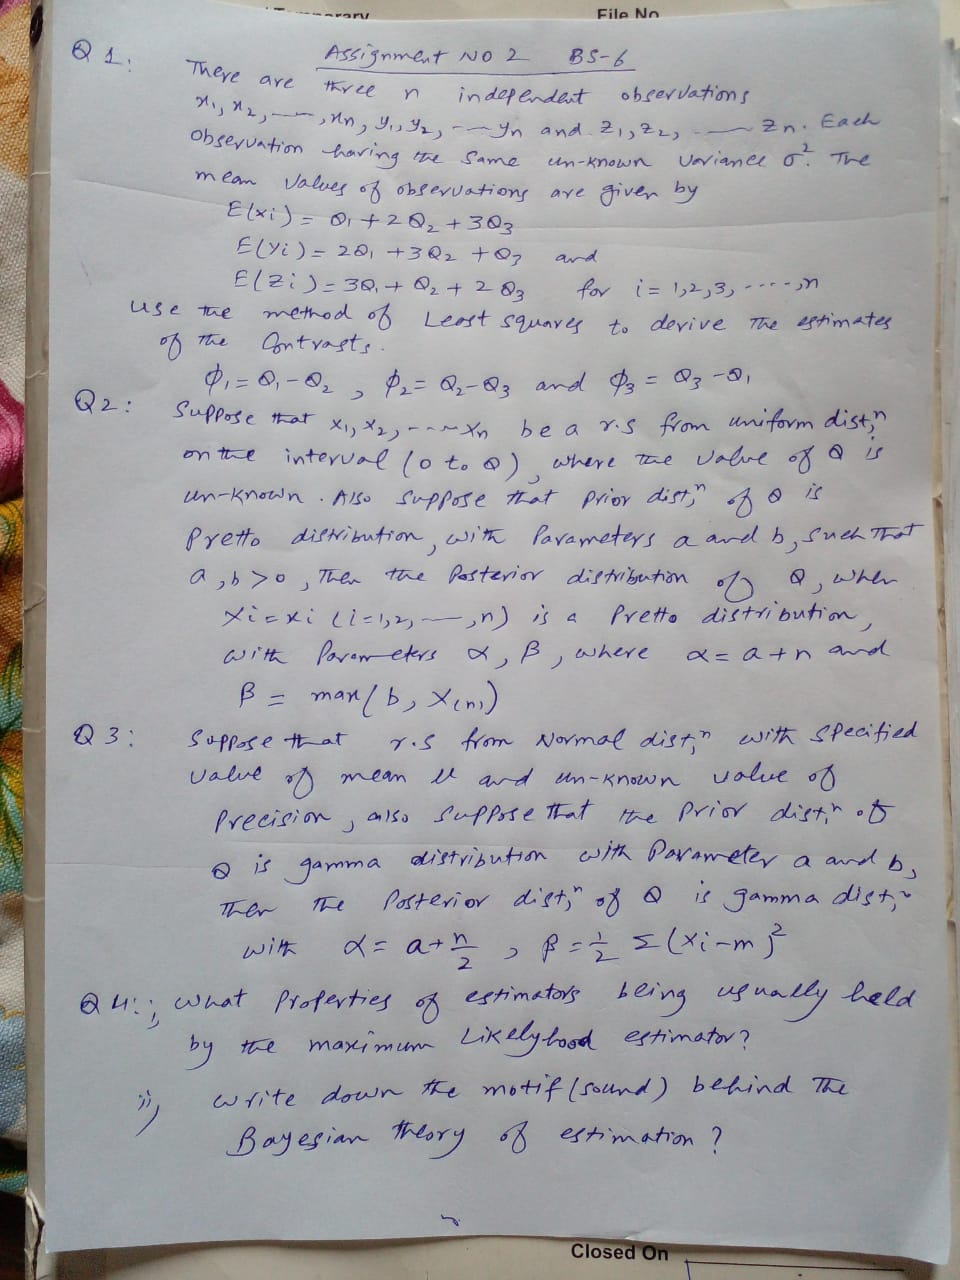 Temporary File No
Assignment NO 2 BS-6
Q 1: There are three n independent observations
x₁, x₂, ---, xn, y₁, y₂, --- yn and z₁, z₂, --- zn. Each
observation having the same un-known variance σ². The
mean values of observations are given by
E(xi) = θ₁ + 2θ₂ + 3θ₃
E(yi) = 2θ₁ + 3θ₂ + θ₃ and
E(zi) = 3θ₁ + θ₂ + 2θ₃ for i = 1,2,3, ----, n
use the method of Least squares to derive the estimates
of the Contrasts.
φ₁ = θ₁ - θ₂, φ₂ = θ₂ - θ₃ and φ₃ = θ₃ - θ₁
Q2: Suppose that x₁, x₂, --- xn be a r.s from uniform dist,ⁿ
on the interval (0 to θ), where the value of θ is
un-known. Also suppose that prior dist,ⁿ of θ is
Pretto distribution, with Parameters a and b, such That
a, b > 0, Then the Posterior distribution of θ, when
Xi = xi (i=1,2, ---, n) is a Pretto distribution,
with Parameters α, β, where α = a + n and
β = max(b, X(n))
Q 3: Suppose that r.s from Normal dist,ⁿ with specified
value of mean u and un-known value of
Precision, also suppose that the Prior dist,ⁿ of
θ is gamma distribution with Parameter a and b,
Then the Posterior dist,ⁿ of θ is gamma dist,ⁿ
with α = a + n/2, β = 1/2 Σ(xi - m)²
Q 4: i, what Properties of estimators being usually held
by the maximum Likelyhood estimator?
ii, write down the motif (sound) behind The
Bayesian theory of estimation?
Closed On